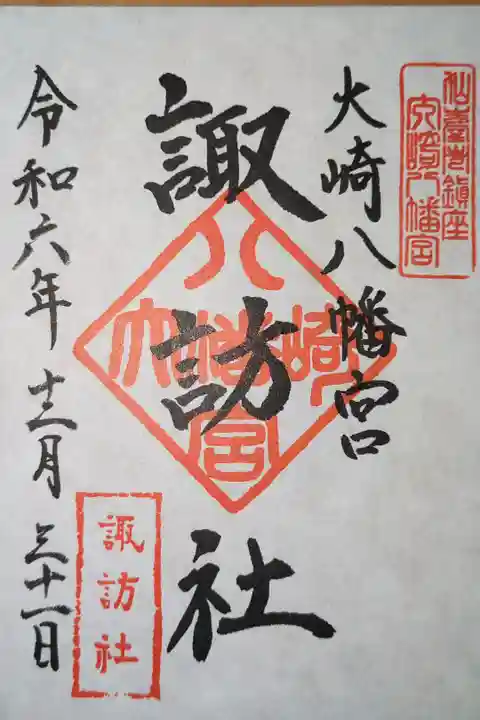 仙臺鎮座
大崎八幡宮
大崎八幡宮
諏訪社
大崎八幡宮
令和六年 十二月 三十一日
諏訪社